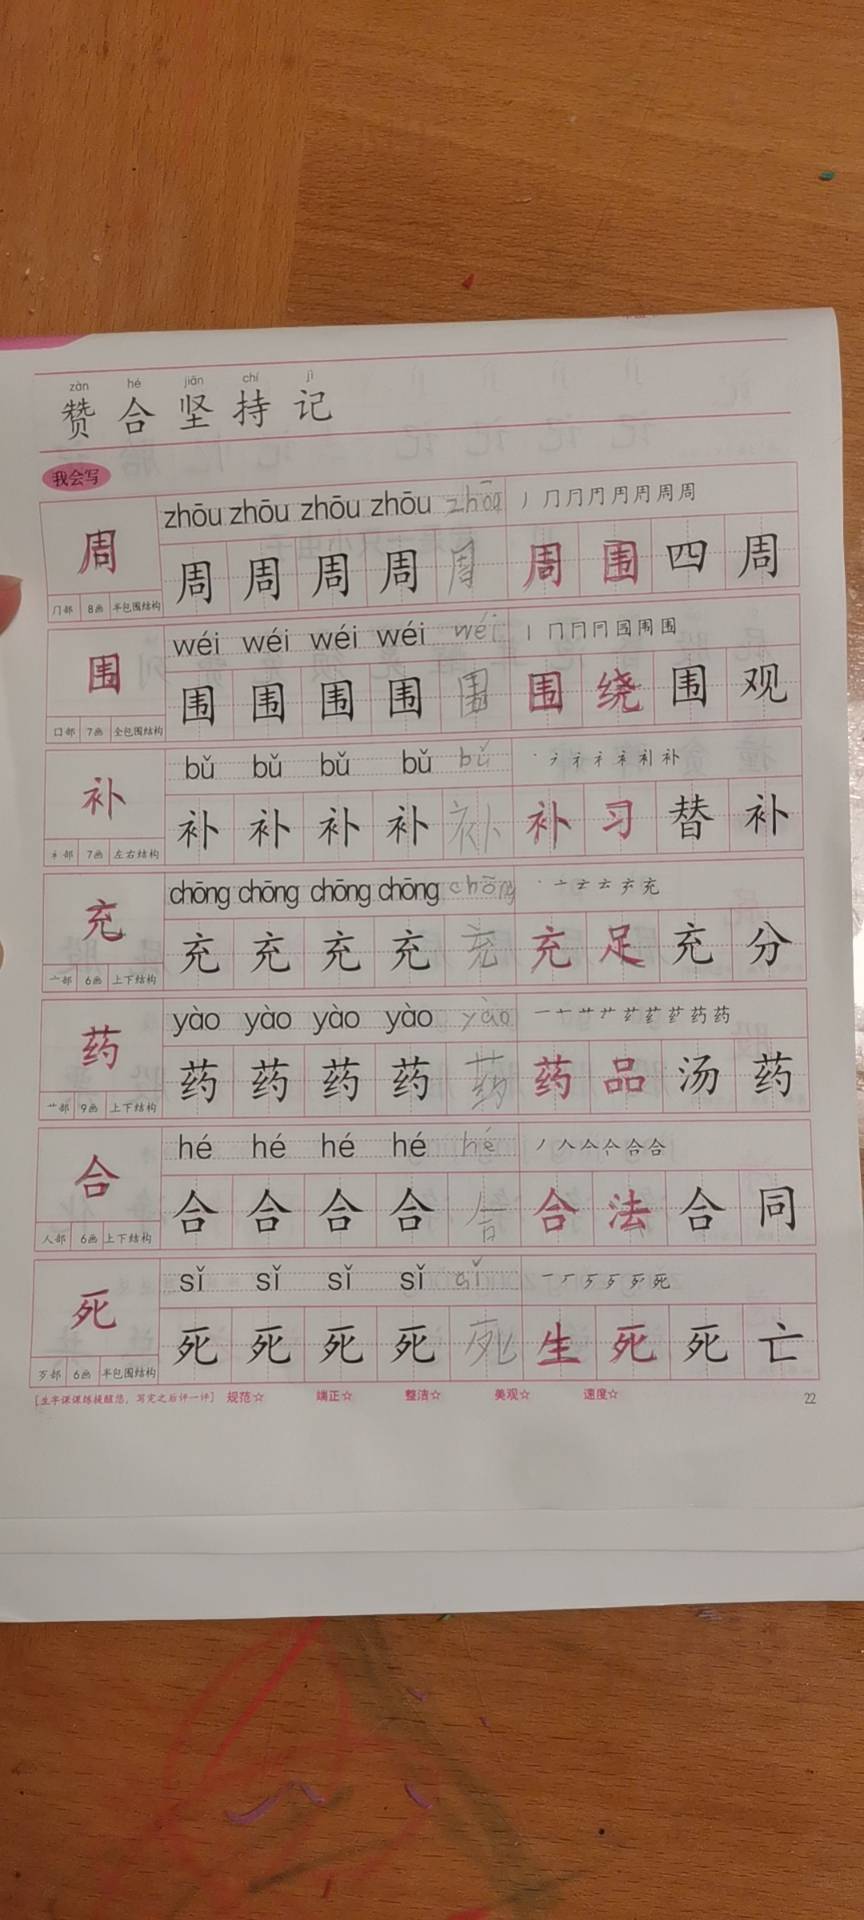 zàn hé jiān chí jì
赞 合 坚 持 记
我会写
zhōu zhōu zhōu zhōu zhōu 丿 冂 冃 冃 周 周 周 周
周 周 周 周 周 周 周 围 四 周
冂部 8画 半包围结构
wéi wéi wéi wéi wéi 丨 冂 冂 冃 囯 围 围
围 围 围 围 围 围 围 绕 围 观
口部 7画 全包围结构
bǔ bǔ bǔ bǔ bǔ
补 补 补 补 补 补 补 习 替 补
衤部 7画 左右结构
chōng chōng chōng chōng chōng
充 充 充 充 充 充 充 足 充 分
亠部 6画 上下结构
yào yào yào yào yào
药 药 药 药 药 药 药 品 汤 药
艹部 9画 上下结构
hé hé hé hé hé
合 合 合 合 合 合 合 法 合 同
人部 6画 上下结构
sǐ sǐ sǐ sǐ sǐ
死 死 死 死 死 死 生 死 死 亡
歹部 6画 半包围结构
[生字课课练提醒您，写完之后评一评] 规范☆ 端正☆ 整洁☆ 美观☆ 速度☆ 22